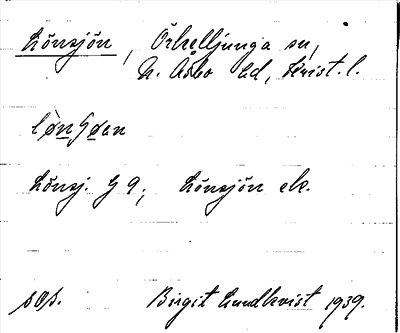 Lönsjön, Örkelljunga sn,
N. Åsbo hd, Krist. l.
Lönsj. G 9; Lönsjön ek.
sOs. Birgit Lundkvist 1939.